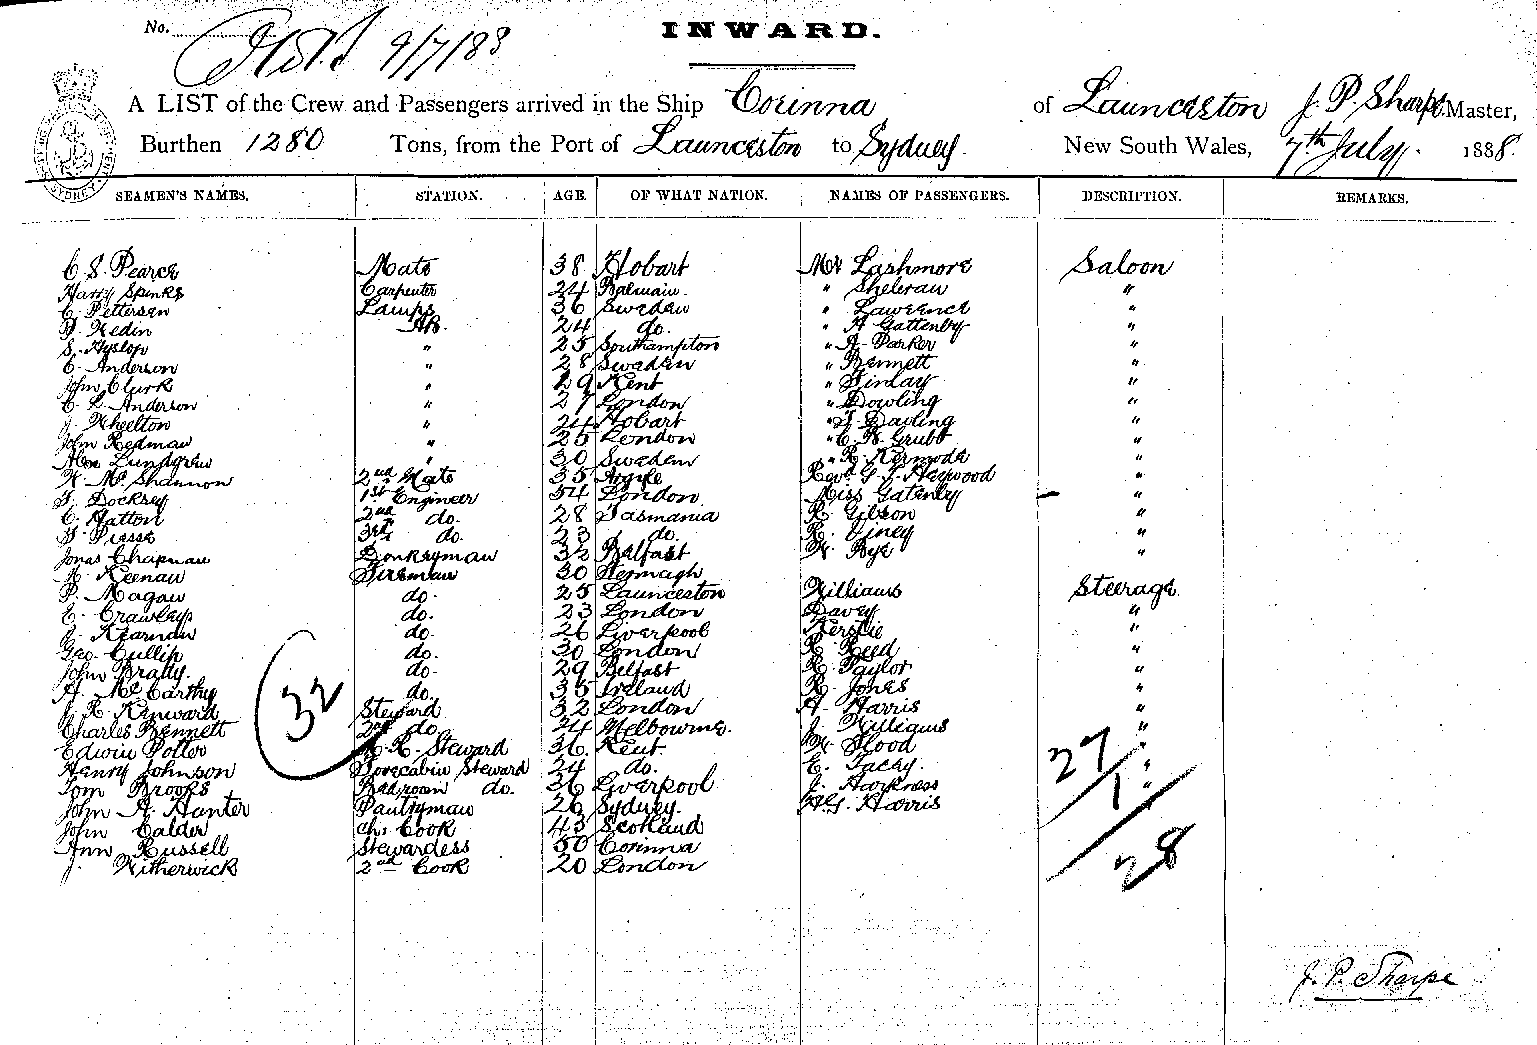 No. 9/7/88
INWARD.
A LIST of the Crew and Passengers arrived in the Ship Corinna of Launceston J. P. Sharpe Master,
Burthen 1280 Tons, from the Port of Launceston to Sydney New South Wales, 7th July 1888.
SEAMEN'S NAMES. STATION. AGE. OF WHAT NATION. NAMES OF PASSENGERS. DESCRIPTION. REMARKS.
C S. Pearce Mate 38 Hobart Mr Lashmore Saloon
Harry Spinks Carpenter 24 Balmain " "
C. Pettersen Lamps 36 Sweden " Lawrence "
Hedin AB. 24 do. " A Gattenby "
S. Hyslop " 25 Southampton " A. Parker "
C. Anderson " 28 Sweden " Bennett "
John Clark " 29 Kent " Finlay "
C. L. Anderson " 27 London " Dowling "
J. Wheelton " 24 Hobart " J. Dowling "
John Redman " 25 London " C. B. Grubb "
Lundgren " 30 Sweden " R. Kermode "
W. Mc Shannon 2nd Mate 35 Argyle Revd G. J. Heywood "
J. Docksey 1st Engineer 54 London Miss Gatenby "
C. Hatton 2nd do. 28 Tasmania R. Gibson "
Piesse 3rd do. 23 do. R. Viney "
Jonas Chapman Donkeyman 32 Belfast W. Bye "
Keenan Fireman 30 Fermagh
P. Magan do. 25 Launceston Williams Steerage
E. Crawley do. 23 London Davey "
J. Kearnan do. 26 Liverpool Kerslie "
Geo. Cullip do. 30 London R Reed "
John Brady. do. 29 Belfast R. Taylor "
A. McCarthy do. 35 Ireland R. Jones "
J. R. Kenward Steward 32 London A. Harris "
Charles Bennett 2nd do. 24 Melbourne. J. Williams "
Edwin Potter Steward 36. Kent. W. Flood "
Henry Johnson Forecabin Steward 24 do. E. Tacey. "
Tom Brooks Bedroom do. 36 Liverpool J. Harkness "
John A. Hunter Pantryman 26 Sydney. Harris "
John Calder Ch. Cook 43 Scotland
Ann Russell Stewardess 50 Corinna
J. Witherwick 2nd Cook 20 London
32
27/1/28
J. P. Sharpe